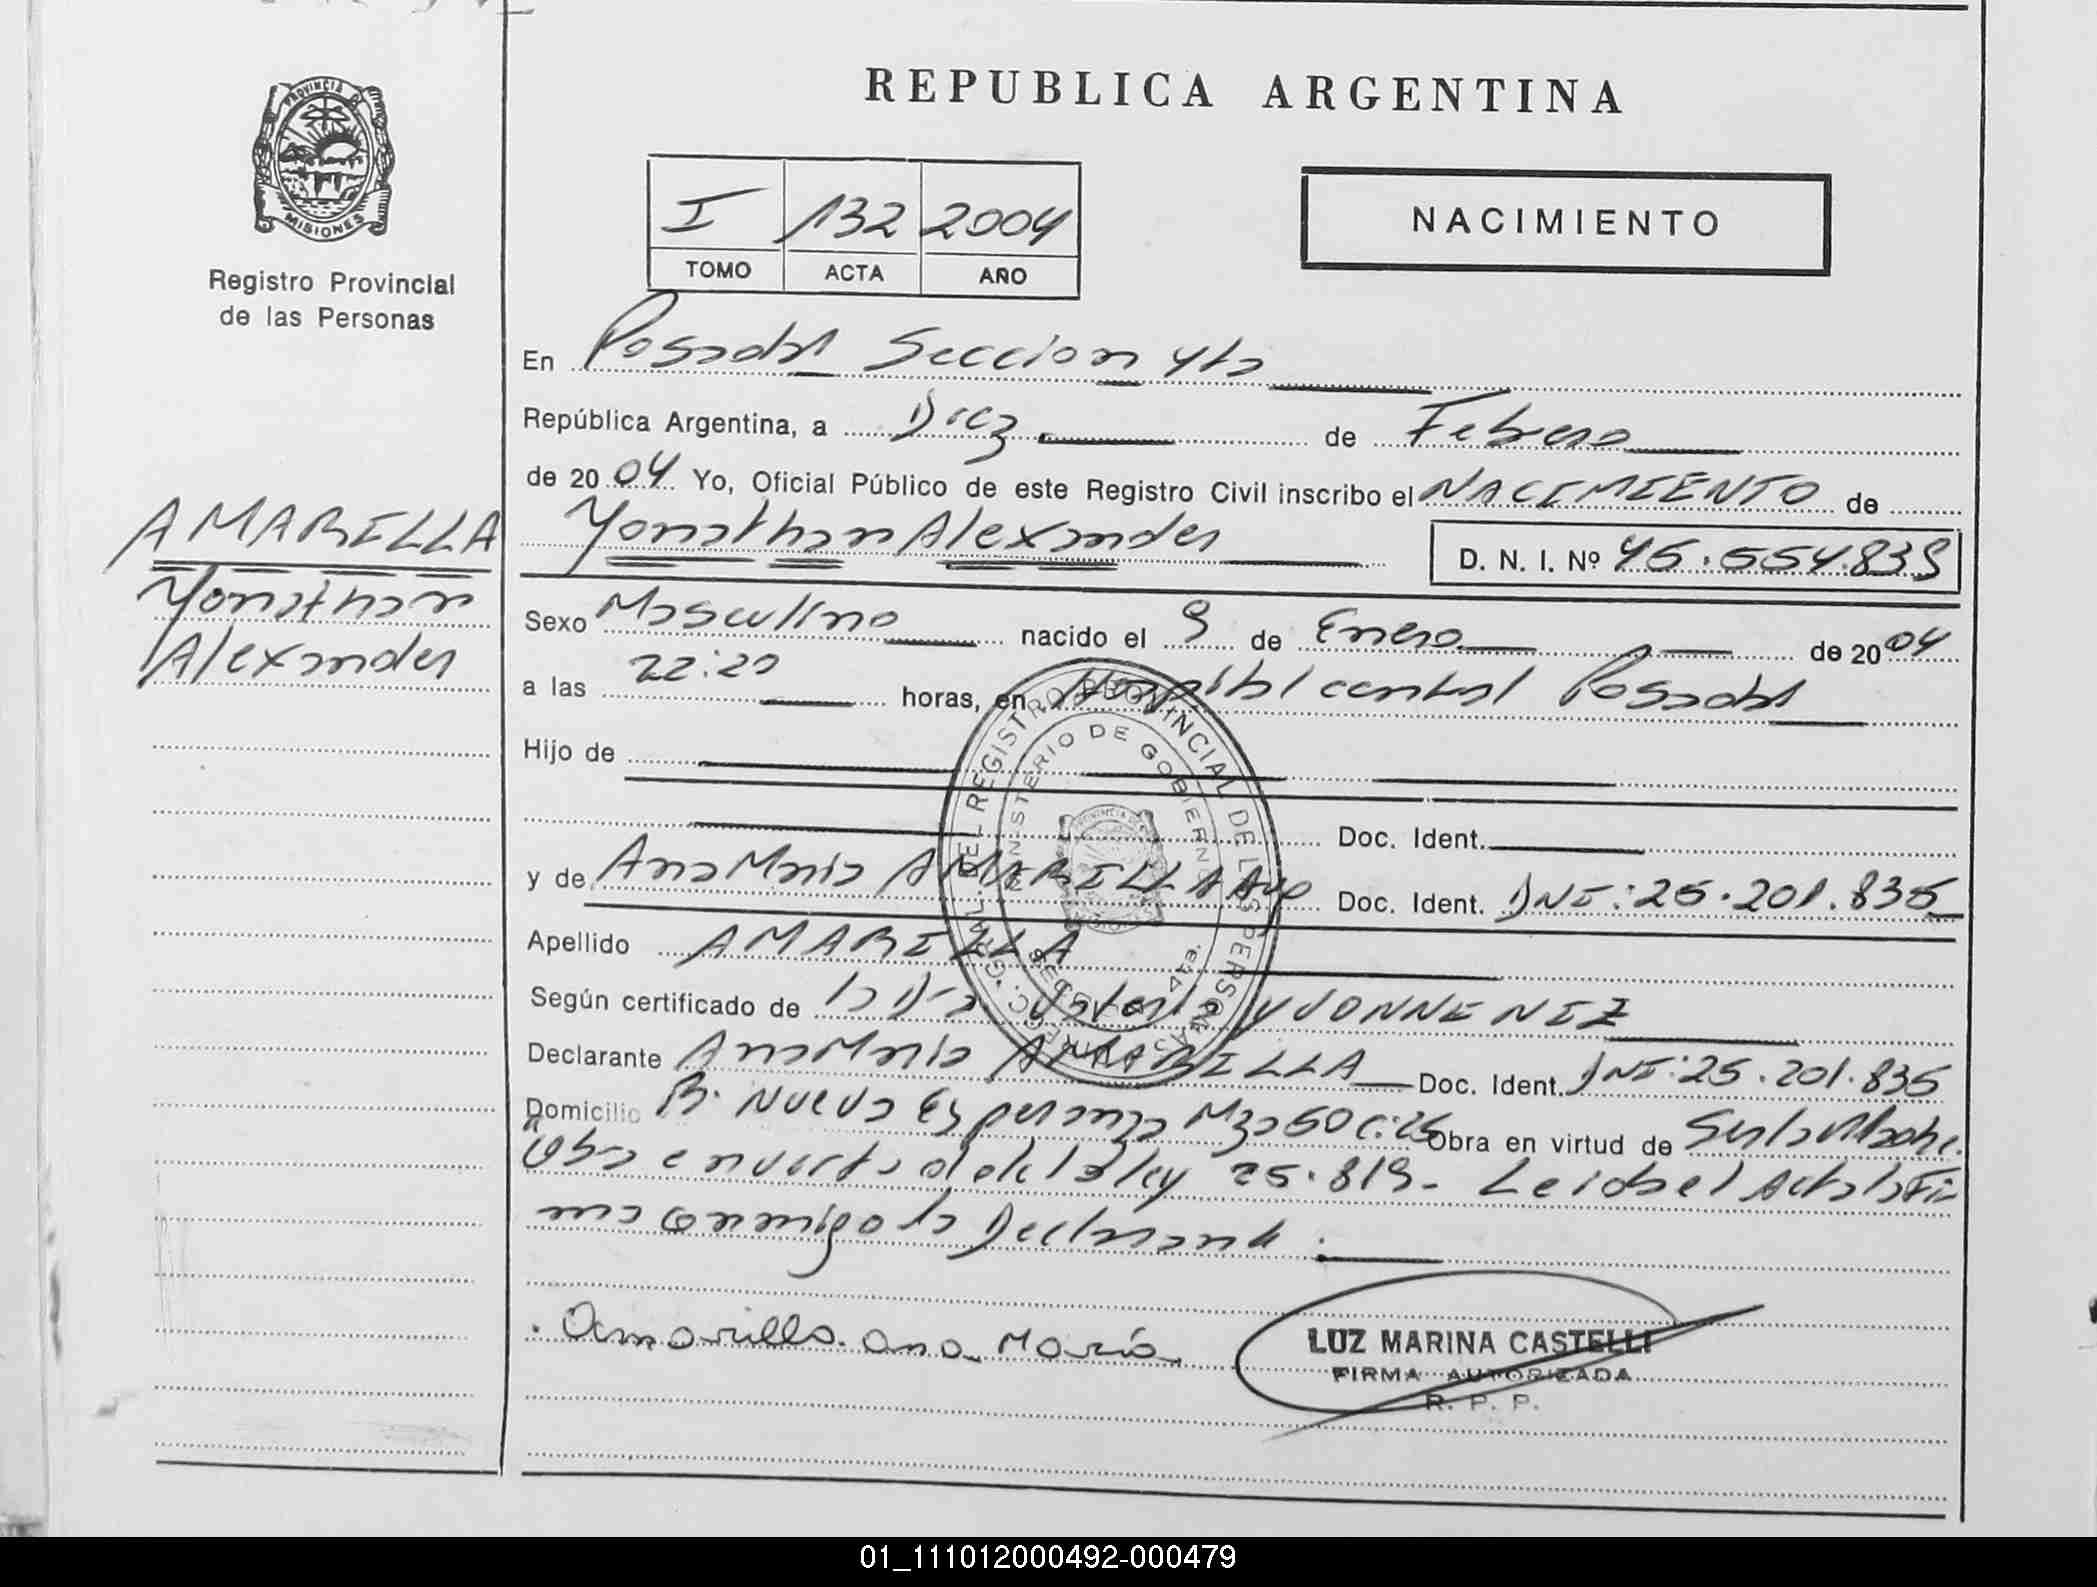 REPUBLICA ARGENTINA
PROVINCIA DE
MISIONES
Registro Provincial
de las Personas
I 132 2004
TOMO ACTA AÑO
NACIMIENTO
En Posadas Seccion 4ta
República Argentina, a Diez de Febrero
de 2004 Yo, Oficial Público de este Registro Civil inscribo el NACIMIENTO de
Yonathan Alexander D. N. I. Nº 45.554.839
AMARILLA
Yonathan
Alexander
Sexo Masculino nacido el 9 de Enero de 2004
a las 22:20 horas, en Hospital central Posadas
Hijo de
Doc. Ident.
y de Ana Maria AMARILLA Doc. Ident. DNI: 25.201.835
Apellido AMARILLA
Según certificado de la Dra YVONNE NIZ
Declarante Ana Maria AMARILLA Doc. Ident. DNI: 25.201.835
Domicilio B. Nueva Esperanza Mza 50 C:25 Obra en virtud de
Obra en virtud de la ley 25.819 - Leida el Acta la Fir
ma conmigo la Declarante.
Amarilla Ana María
LUZ MARINA CASTELLI
FIRMA AUTORIZADA
R. P. P.
REGISTRO PROVINCIAL DE LAS PERSONAS
MINISTERIO DE GOBIERNO
SECCION 4ta.
01_111012000492-000479